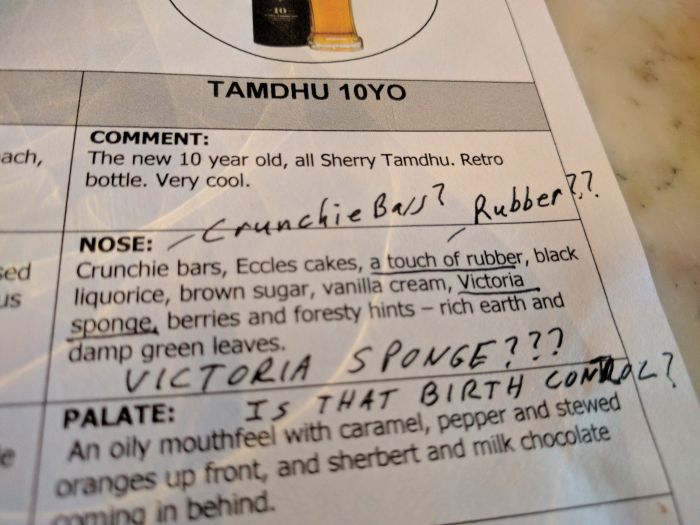 10
TAMDHU 10YO
ach,
COMMENT:
The new 10 year old, all Sherry Tamdhu. Retro
bottle. Very cool.
Crunchie Bars? Rubber??
NOSE:
sed
Crunchie bars, Eccles cakes, a touch of rubber, black
us
liquorice, brown sugar, vanilla cream, Victoria
sponge, berries and foresty hints – rich earth and
damp green leaves.
VICTORIA SPONGE???
IS THAT BIRTH CONTROL?
PALATE:
An oily mouthfeel with caramel, pepper and stewed
oranges up front, and sherbert and milk chocolate
coming in behind.